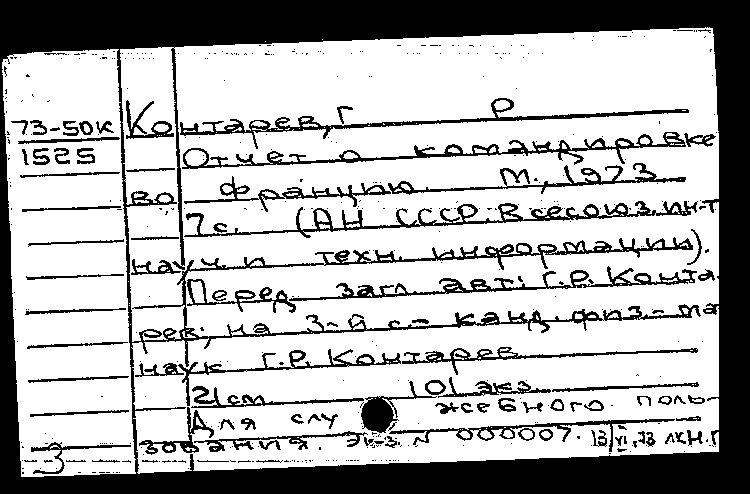 73-50К Контарев, Г Р
1525 Отчет о командировке
во Францию М., 1973
7 с. (АН СССР. Всесоюз. ин-т
науч. и техн. информации).
Перед загл. авт: Г.Р. Конта-
рев; на 3-й с - канд. физ.- ма
наук Г.Р. Контарев
21 см. 101 экз.
Для служебного поль-
зования. Экз. N 000007. 13/VI,73 ЛКН.Г
3